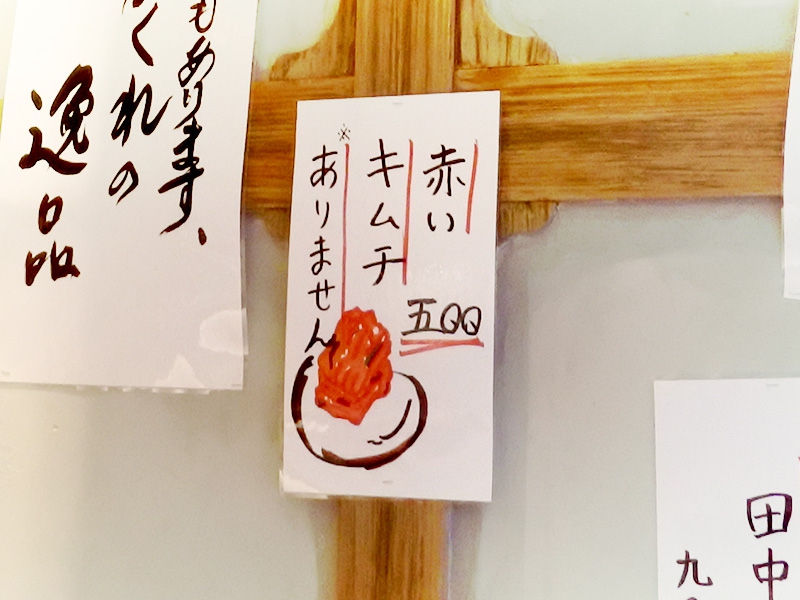 赤い
キムチ
五〇〇
※ありません
もあります、
くれの
逸品
田中
九